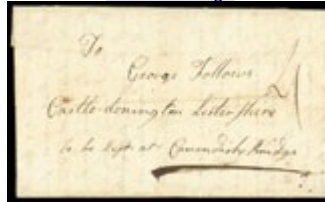 To
George Follows
Castle-donnington Lestershire
to be left at Cavendish Bridge